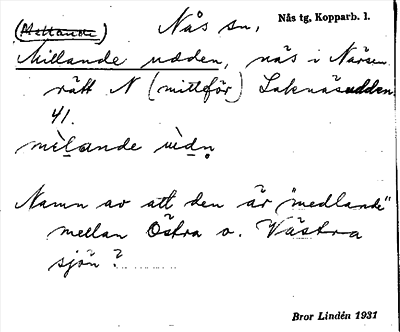 (Mellande) Nås sn, Nås tg, Kopparb. l.
Millande udden, näs i Närsen
rätt N (mittför) Laknäsudden
41.
mèlande ùdn.
Namn av att den är "medlande"
mellan Östra o. Västra
sjön?
Bror Lindén 1931